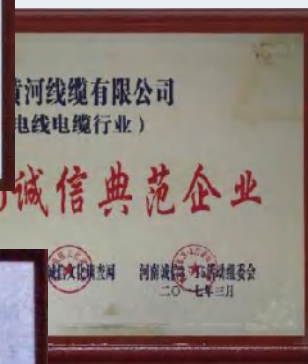 黄河线缆有限公司
电线电缆行业）
诚信典范企业
调查网 河南诚信 活动组委会
二〇一七年三月